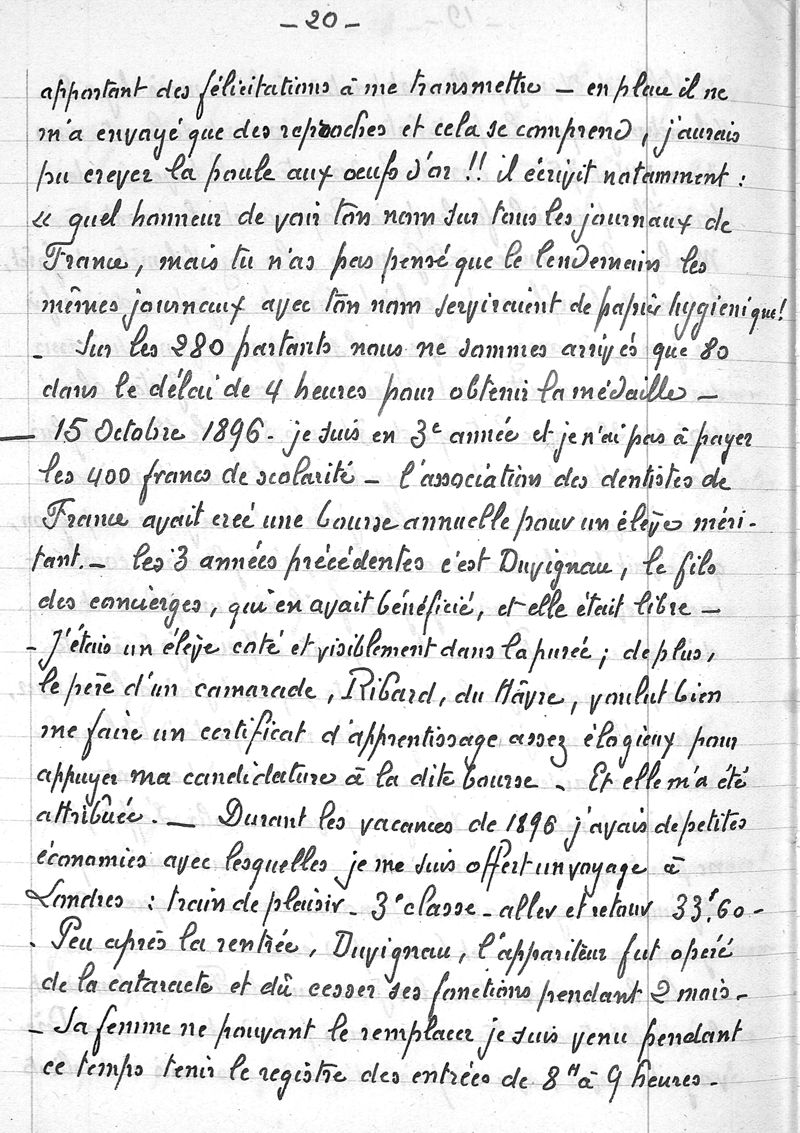 - 20 -
apportant des félicitations à me transmettre - en place il ne
m'a envoyé que des reproches et cela se comprend, j'aurais
pu crever la poule aux oeufs d'or !! il écrivit notamment :
« quel honneur de voir ton nom sur tous les journaux de
France, mais tu n'as pas pensé que le lendemain les
mêmes journaux avec ton nom serviraient de papier hygiénique!
- Sur les 280 partants nous ne sommes arrivés que 80
dans le délai de 4 heures pour obtenir la médaille -
- 15 Octobre 1896 - je suis en 3e année et je n'ai pas à payer
les 400 francs de scolarité - l'association des dentistes de
France avait creé une bourse annuelle pour un élève méri-
tant. - les 3 années précédentes c'est Duvignau, le fils
des concierges, qui en avait bénéficié, et elle était libre -
- J'étais un élève coté et visiblement dans la purée ; de plus,
le père d'un camarade, Ribard, du Hâvre, voulut bien
me faire un certificat d'apprentissage assez élogieux pour
appuyer ma candidature à la dite bourse - Et elle m'a été
attribuée. - Durant les vacances de 1896 j'avais de petites
économies avec lesquelles je me suis offert un voyage à
Londres : train de plaisir - 3e classe - aller et retour 33f.60 -
- Peu après la rentrée, Duvignau, l'appariteur fut opéré
de la cataracte et dû cesser ses fonctions pendant 2 mois -
- Sa femme ne pouvant le remplacer je suis venu pendant
ce temps tenir le registre des entrées de 8H à 9 heures -